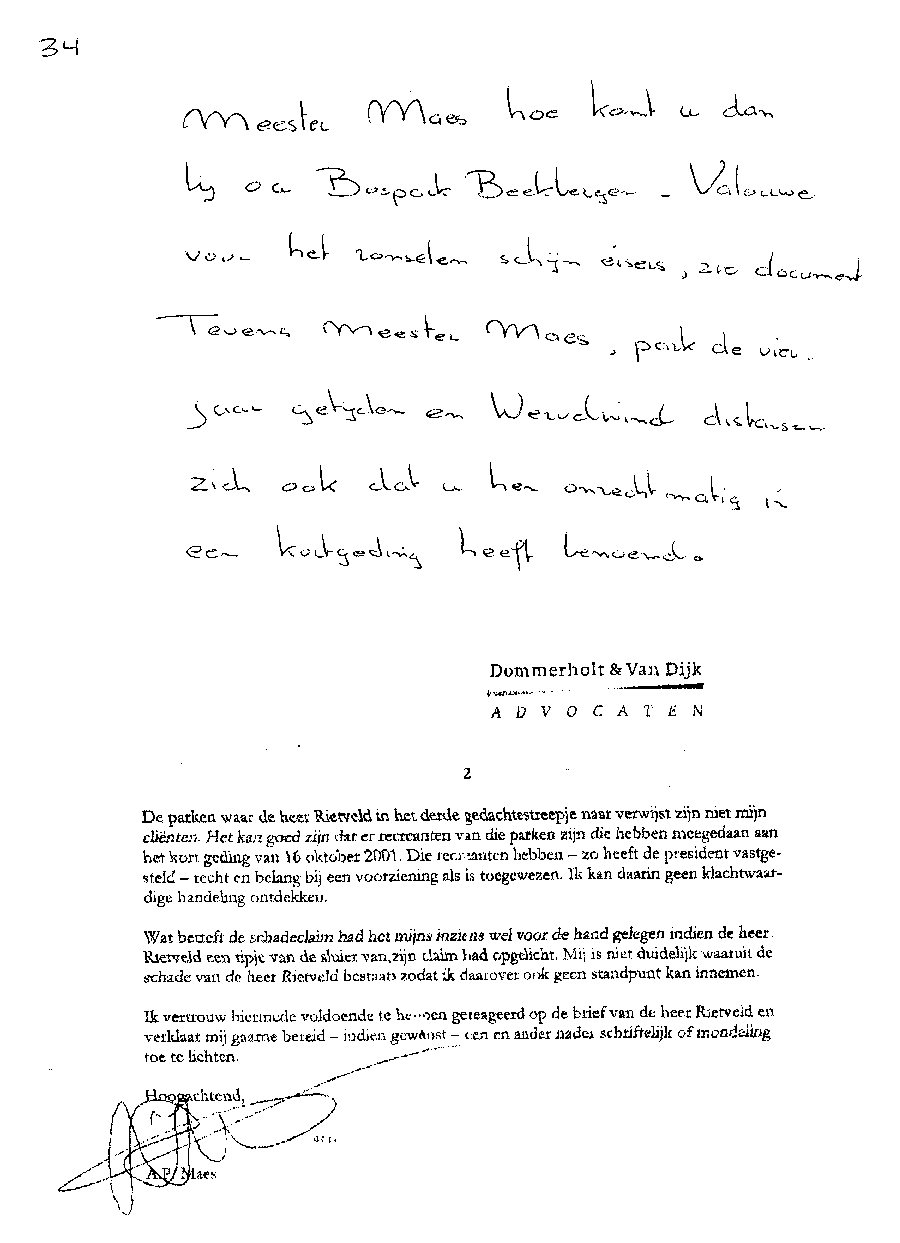 34
Meester Maes hoe komt u dan
bij oa Buspark Beekbergen - Valouwe
voor het ronselen schijn eisers, zie document
Tevens Meester Maes, park de vier
jaar getijden en Wervelwind
zich ook dat u hen onrechtmatig in
een kortgeding heeft benoemd.
Dommerholt & Van Dijk
A D V O C A T E N
2
De parken waar de heer Rietveld in het derde gedachtestreepje naar verwijst zijn niet mijn
cliënten. Het kan goed zijn dat er recreanten van die parken zijn die hebben meegedaan aan
het kort geding van 16 oktober 2001. Die recreanten hebben – zo heeft de president vastge-
steld – recht en belang bij een voorziening als is toegewezen. Ik kan daarin geen klachtwaar-
dige handeling ontdekken.
Wat betreft de schadeclaim had het mijns inziens wel voor de hand gelegen indien de heer
Rietveld een tipje van de sluier van zijn claim had opgelicht. Mij is niet duidelijk waaruit de
schade van de heer Rietveld bestaat zodat ik daarover ook geen standpunt kan innemen.
Ik vertrouw hiermede voldoende te hebben gereageerd op de brief van de heer Rietveld en
verklaar mij gaarne bereid – indien gewenst – een en ander nader schriftelijk of mondeling
toe te lichten.
Hoogachtend,
A.P. Maes